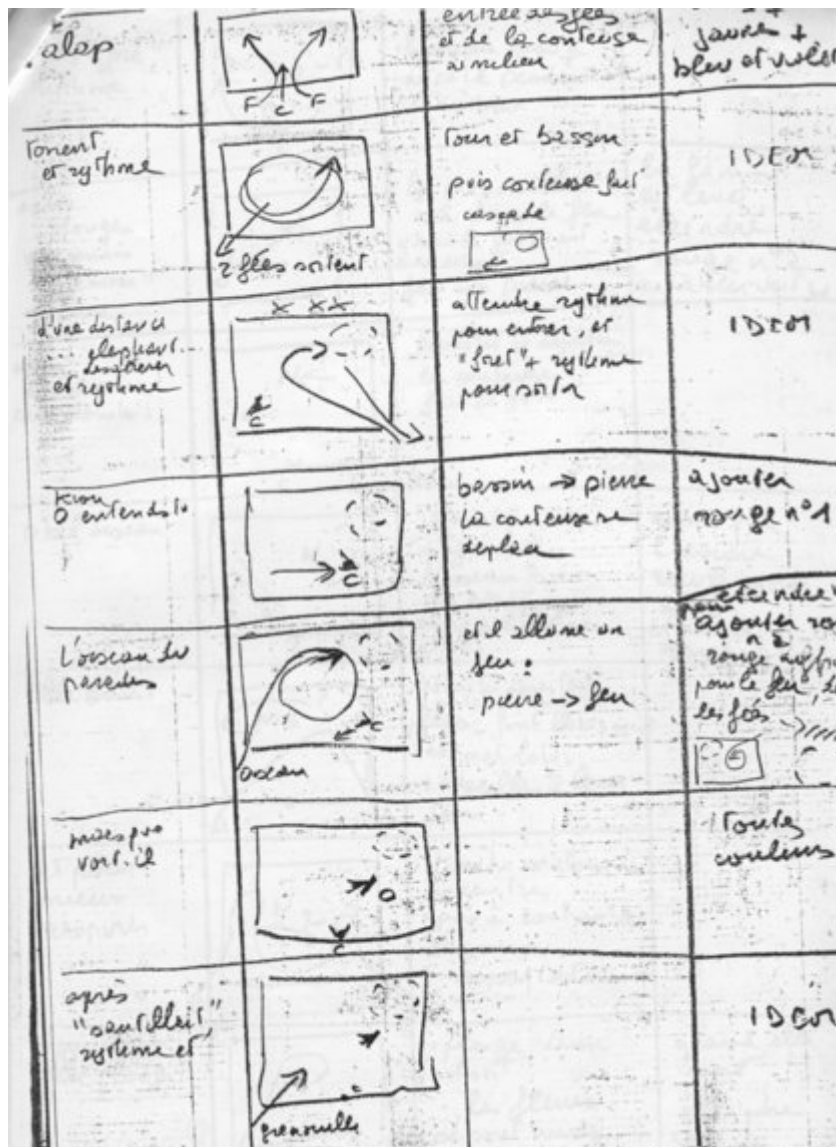 alap
F C F
entrée des fées
et de la conteuse
au milieu
jaunes +
bleu et violet
torrent
et rythme
2 fées sortent
tour et bassin
puis conteuse fait
cascade
IDEM
d'une distance
elephant
et rythme
x xx
C
attendre rythme
pour entrer, et
"foret" + rythme
pour sortir
IDEM
O entends tu
C
bassin → pierre
la conteuse se
deplace
ajouter
rouge n°1
L'oiseau du
paradis
C
oiseau
et il allume un
feu :
pierre → feu
eteindre
ajouter
n 2
rouge
pour le feu,
les fois
vort-il
O
C
toutes
couleurs
après
"sautillait"
rythme et
grenouille
IDEM